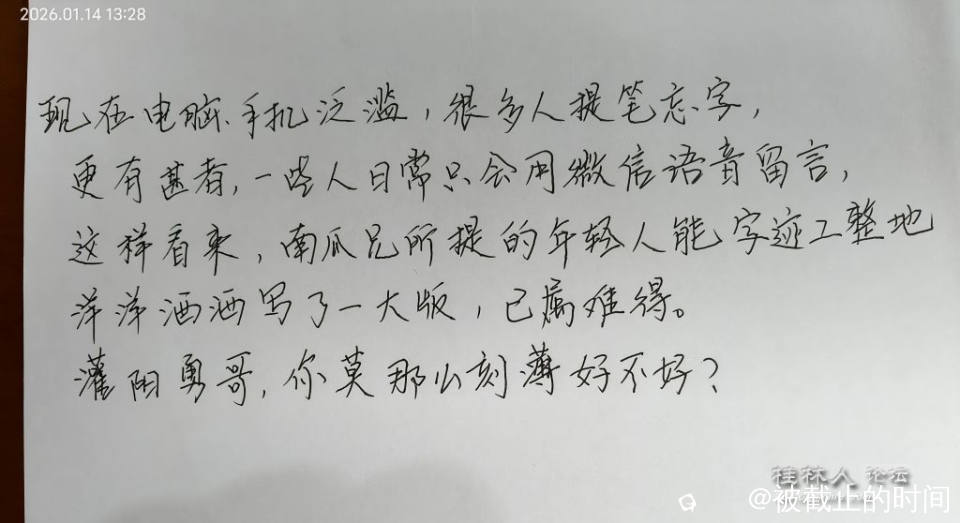 2026.01.14 13:28
现在电脑、手机泛滥,很多人提笔忘字,
更有甚者,一些人日常只会用微信语音留言,
这样看来,南瓜兄所提的年轻人能字迹工整地
洋洋洒洒写了一大版,已属难得。
灌阳勇哥,你莫那么刻薄好不好?
桂林人论坛
@被截止的时间